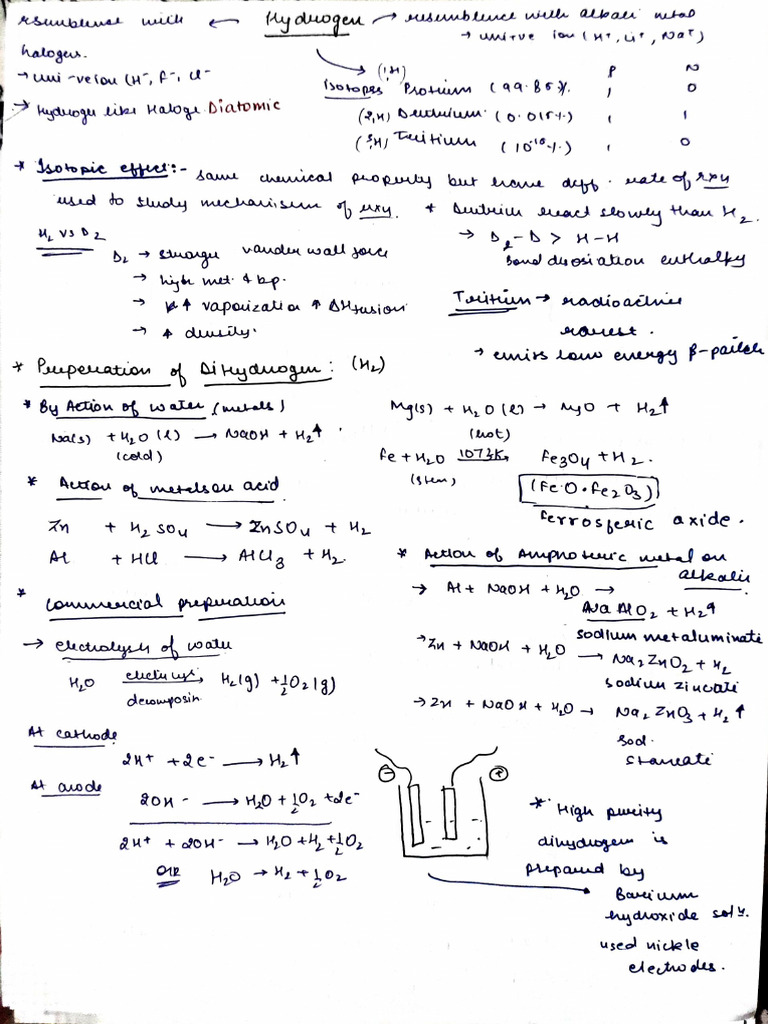 resemblence with ← Hydrogen → resemblence with alkali metal
halogen.
→ uni+ve ion (H⁺, Li⁺, Na⁺)
→ uni-ve ion (H⁻, F⁻, Cl⁻
→ Hydrogen like Haloge. Diatomic
(¹₁H) P N
Isotopes Protium (99.85%. 1 0
(²₁H) Deutrium (0.015%.) 1 1
(³₁H) Tritium (10⁻¹⁸%) 1 0
* Isotopic effect:- same chemical property but have diff. rate of rxn
used to study mechanism of rxn. * Deutrium react slowly than H₂.
H₂ vs D₂
D₂ → stronger vander wall force
→ high met. & bp.
→ ↑ vaporization ↑ ΔH fusion
→ ↑ density.
→ D₂-D > H-H
Bond dissosiation enthalpy
Tritium → radioactive
rarest.
→ emits low energy β-
* Preperation of Dihydrogen: (H₂)
* By Action of water (metals)
Na(s) + H₂O (l) → NaOH + H₂↑
(cold)
Mg(s) + H₂O (l) → MgO + H₂↑
(hot)
Fe + H₂O 1073K→ Fe₃O₄ + H₂.
(stem) (FeO•Fe₂O₃)
ferrosferic oxide.
* Action of metals on acid
Zn + H₂SO₄ → ZnSO₄ + H₂
Al + HCl → AlCl₃ + H₂
* Action of Amphoteric metal on
alkalii
→ Al + NaOH + H₂O →
NaAlO₂ + H₂↑
sodium metaluminate
→ Zn + NaOH + H₂O → Na₂ZnO₂ + H₂
sodium zincati
→ Zn + NaOH + H₂O → Na₂ZnO₃ + H₂↑
sod.
stannati
* Commercial preparation
→ electrolysis of water
H₂O → H₂(g) + ½O₂(g)
decomposin
At cathode
2H⁺ + 2e⁻ → H₂↑
At anode
2OH⁻ → H₂O + ½O₂ + 2e⁻
2H⁺ + 2OH⁻ → H₂O + H₂ + ½O₂
OR H₂O → H₂ + ½O₂
⊖ ⊕
* High purity
dihydrogen is
prepared by
Barium
hydroxide solⁿ.
used nickle
electrodes.